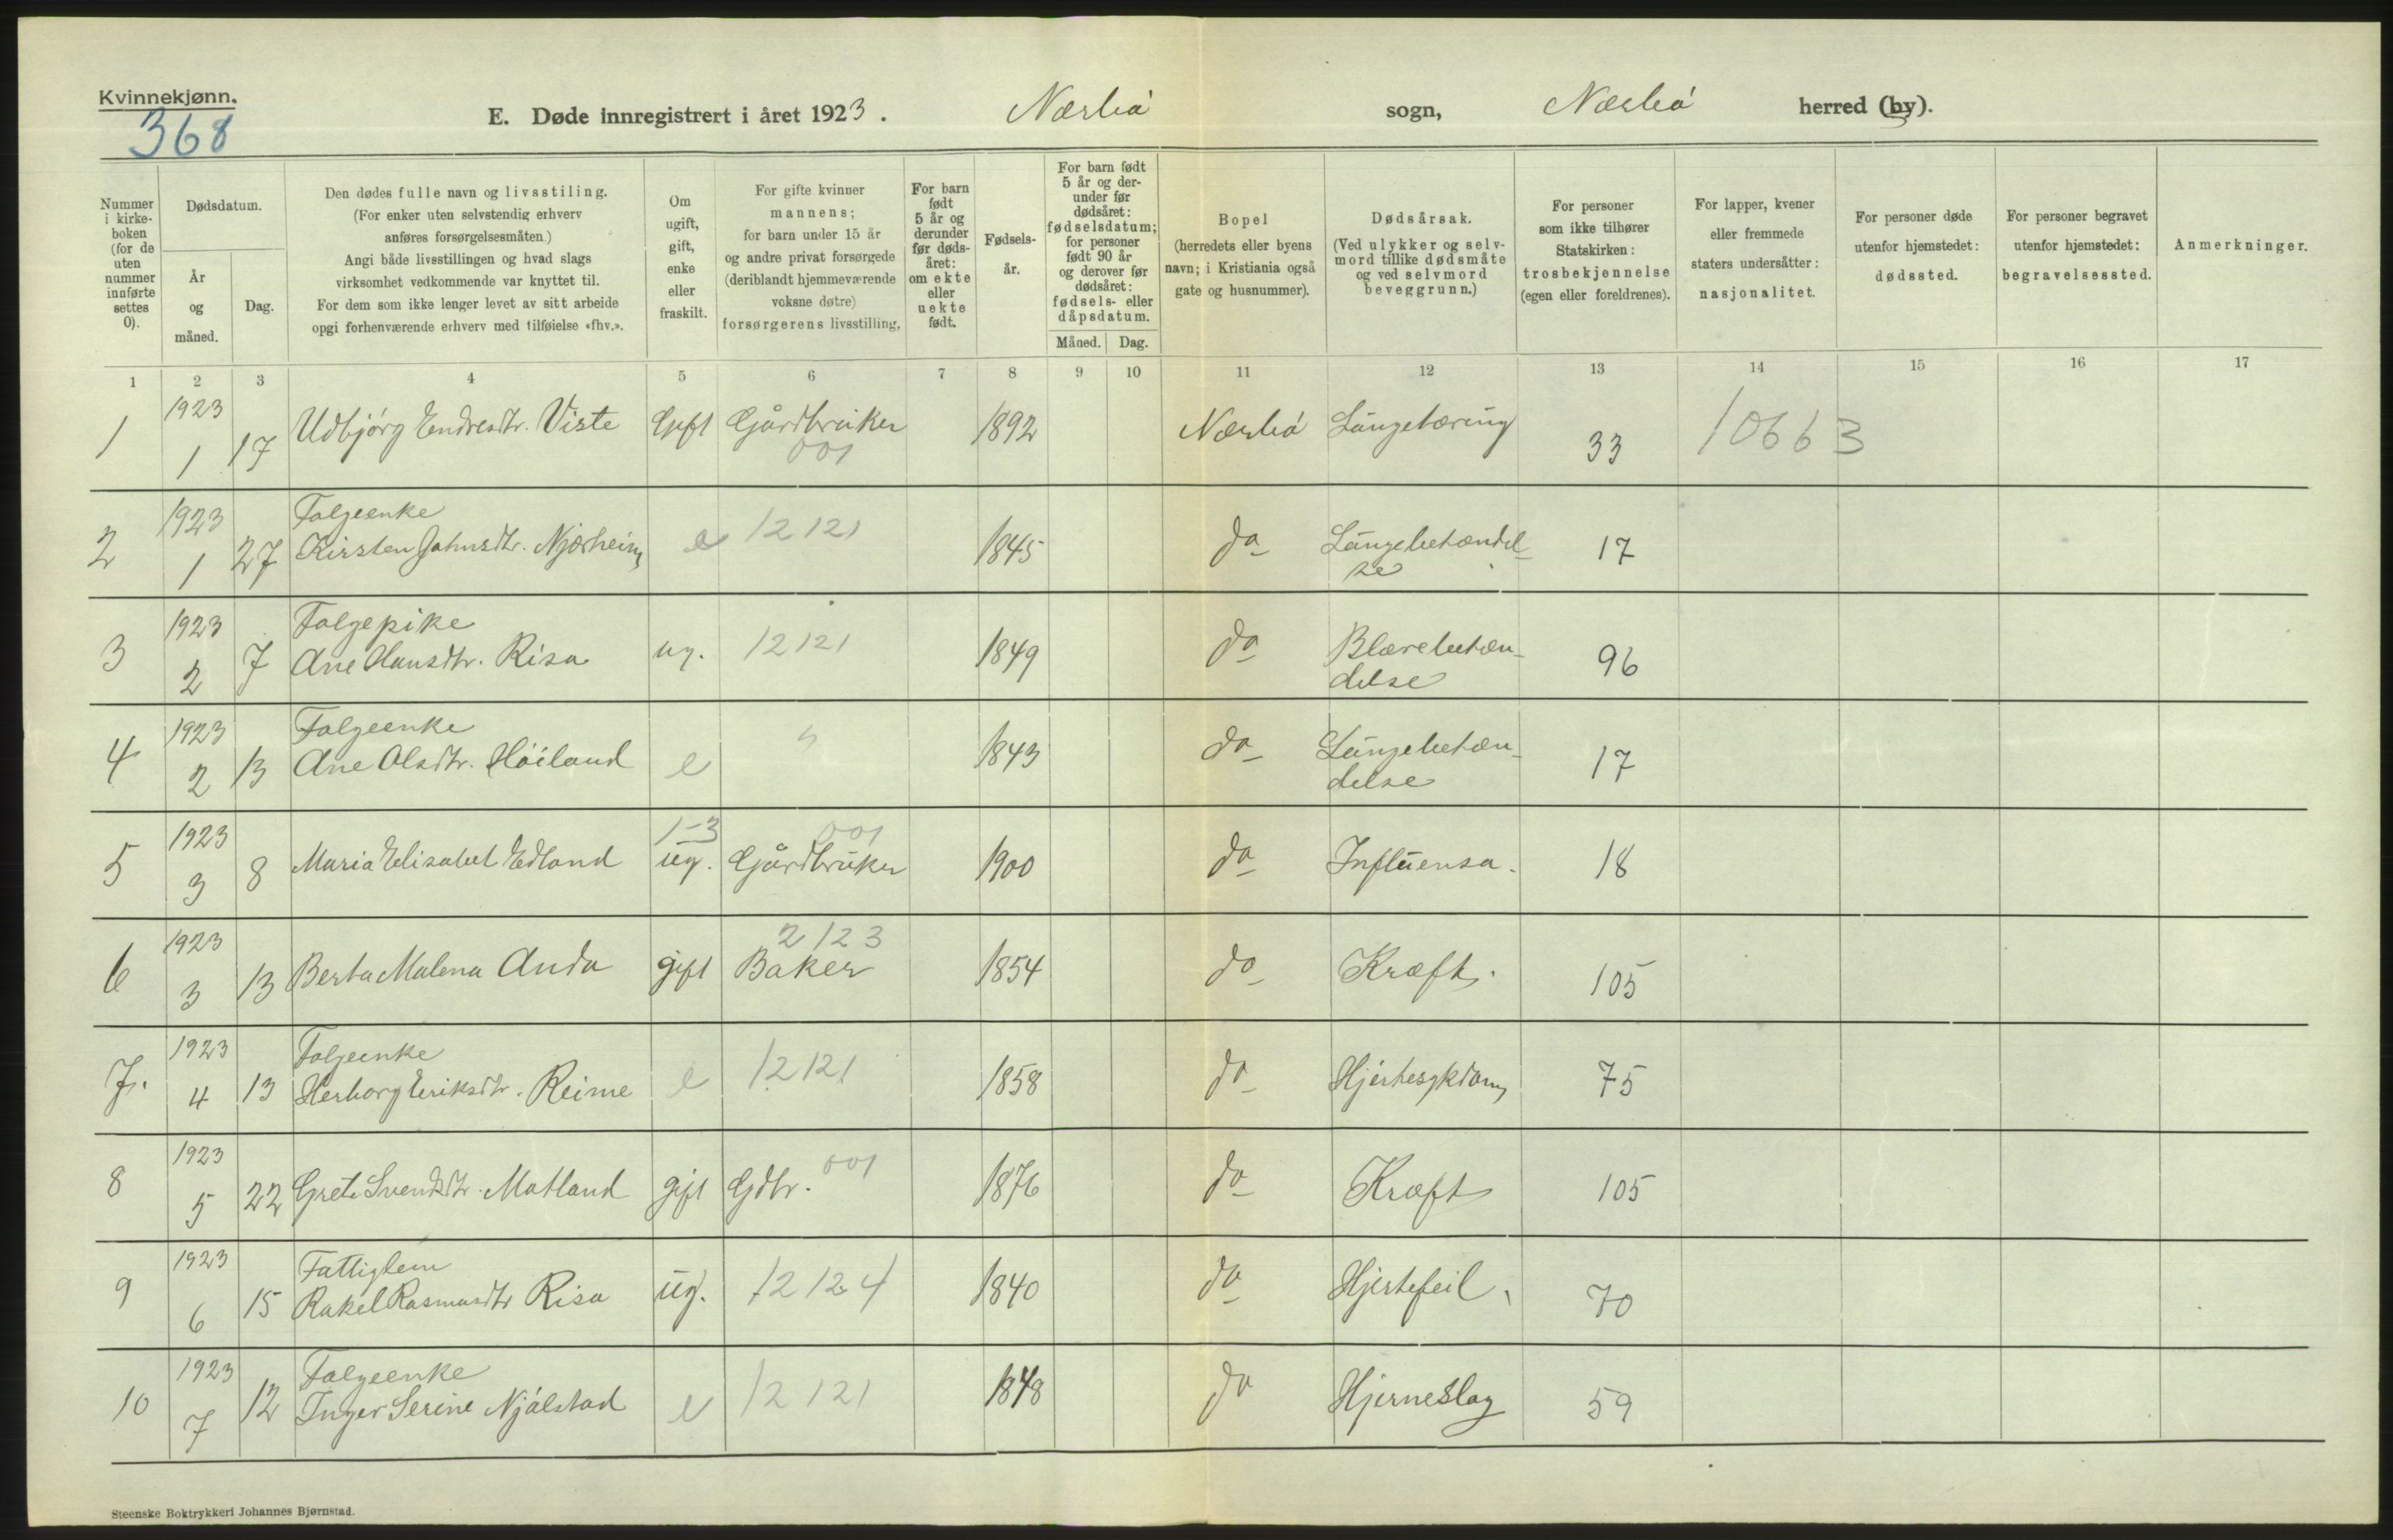 Kvinnekjønn.
368
E. Døde innregistrert i året 1923. Nærbø sogn, Nærbø herred (by).
Nummer i kirke- boken (for de uten nummer innførte settes 0).
Dødsdatum.
År og måned.
Dag.
Den dødes fulle navn og livsstiling.
(For enker uten selvstendig erhverv
anføres forsørgelsesmåten.)
Angi både livsstillingen og hvad slags
virksomhet vedkommende var knyttet til.
For dem som ikke lenger levet av sitt arbeide
opgi forhenværende erhverv med tilføielse «fhv.».
Om ugift, gift, enke eller fraskilt.
For gifte kvinner
mannens;
for barn under 15 år
og andre privat forsørgede
(deriblandt hjemmeværende
voksne døtre)
forsørgerens livsstilling.
For barn født 5 år og derunder før døds- året: om ekte eller uekte født.
Fødsels- år.
For barn født 5 år og der- under før dødsåret: fødselsdatum; for personer født 90 år og derover før dødsåret: fødsels- eller dåpsdatum.
Måned. Dag.
Bopel
(herredets eller byens
navn; i Kristiania også
gate og husnummer).
Dødsårsak.
(Ved ulykker og selv-
mord tillike dødsmåte
og ved selvmord
beveggrunn.)
For personer
som ikke tilhører
Statskirken:
trosbekjennelse
(egen eller foreldrenes).
For lapper, kvener
eller fremmede
staters undersåtter:
nasjonalitet.
For personer døde
utenfor hjemstedet:
dødssted.
For personer begravet
utenfor hjemstedet:
begravelsessted.
Anmerkninger.
1 2 3 4 5 6 7 8 9 10 11 12 13 14 15 16 17
1 1923 1 17 Udbjørg Endresdtr. Viste Gift Gårdbruker 001 1892 Nærbø Lungetæring 33 10663
2 1923 1 27 Folgeenke
Kirsten Johnsdtr. Njærheim e 12121 1845 do Lungebetændel-
se 17
3 1923 2 7 Folgepike
Ane Hansdtr. Risa ug. 12121 1849 do Blærebetæn-
delse 96
4 1923 2 13 Folgeenke
Ane Olsdtr. Høiland e " 1843 do Lungebetæn-
delse 17
5 1923 3 8 Maria Elisabet Edland 1-3 ug. 001 Gårdbruker 1900 do Influensa. 18
6 1923 3 13 Berta Malena Anda gift 2123 Baker 1854 do Kræft. 105
7. 1923 4 13 Folgeenke
Herborg Eriksdtr. Reime e 12121 1858 do Hjertesykdom 75
8 1923 5 22 Grete Svendsdtr. Motland gift Gdbr. 001 1876 do Kræft 105
9 1923 6 15 Fattiglem
Rakel Rasmusdtr Risa ug. 12124 1840 do Hjertefeil. 70
10 1923 7 12 Folgeenke
Inger Serine Njølstad e 12121 1848 do Hjerneslag 59
Steenske Boktrykkeri Johannes Bjørnstad.